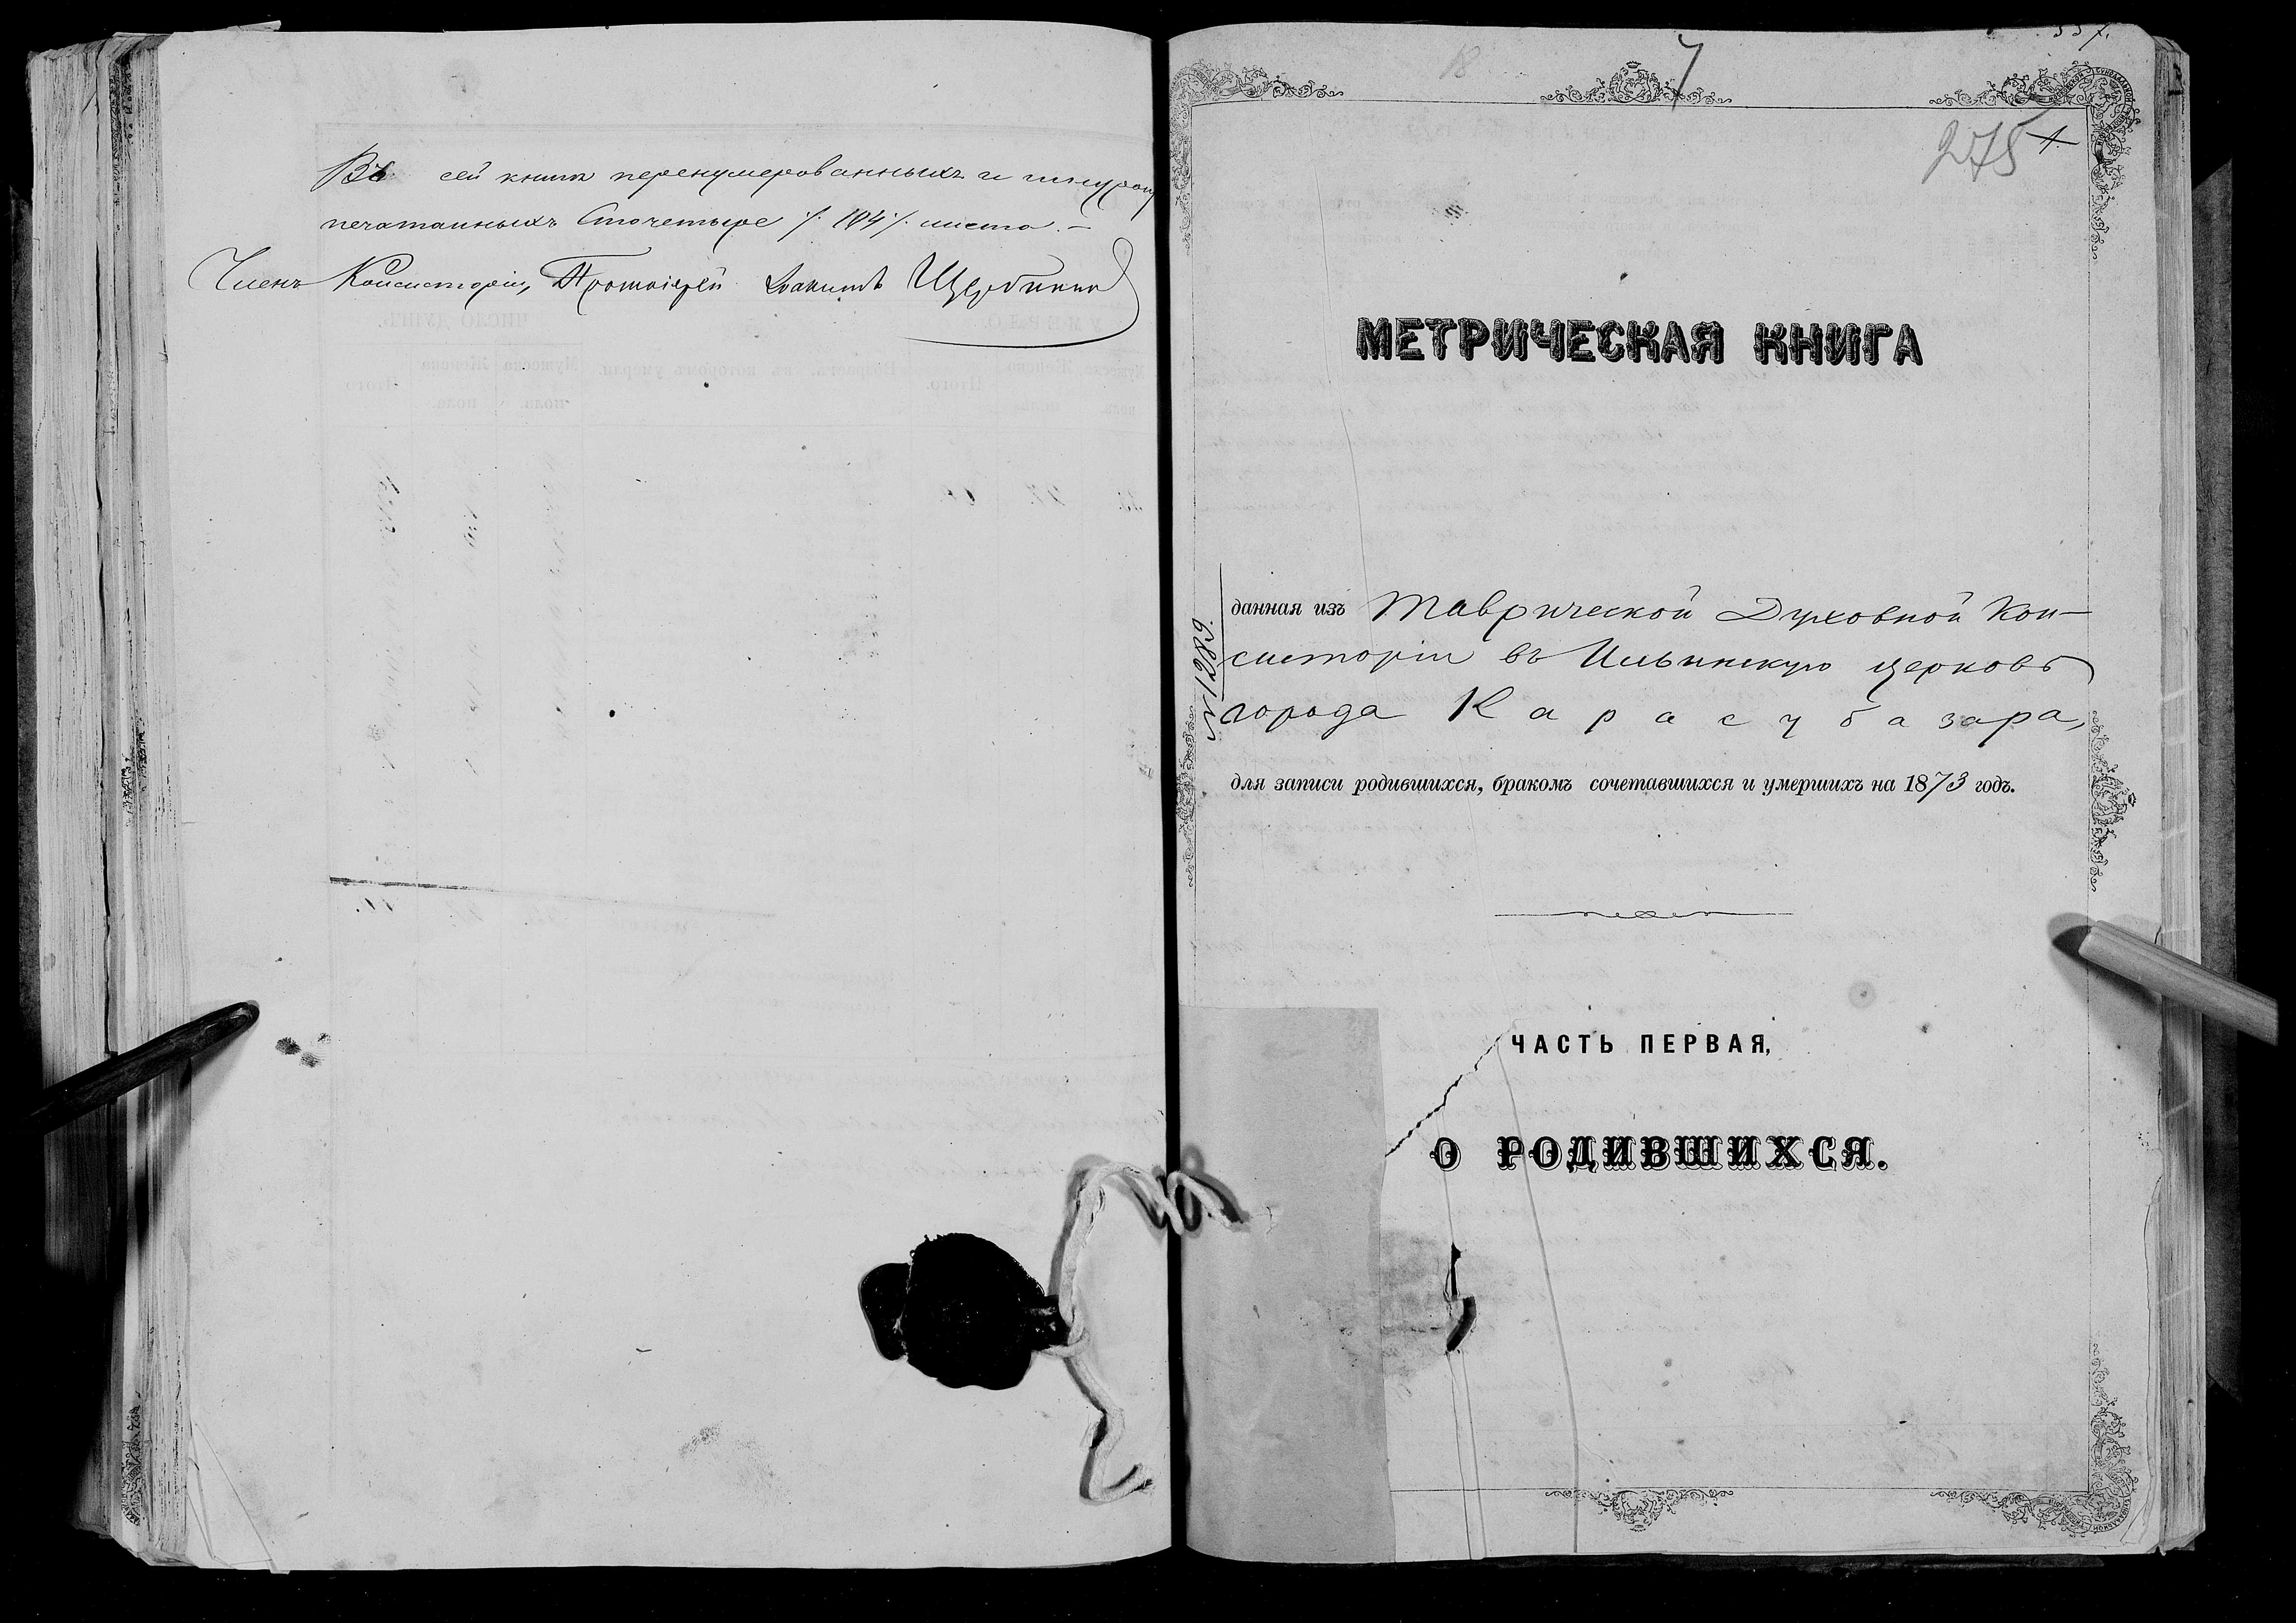 Въ сей книгѣ перенумерованныхъ и
печатанныхъ Сточетыре /104/ листа.
Членъ Консисторіи, Протоіерей Іоакимъ Щербининъ
18
7
337.
275
1
МЕТРИЧЕСКАЯ КНИГА
№ 1289.
данная изъ Таврической Духовной Кон-
систоріи въ Ильинскую церковь
города Карасубазара,
для записи родившихся, бракомъ сочетавшихся и умершихъ на 1873 годъ.
ЧАСТЬ ПЕРВАЯ,
О РОДИВШИХСЯ.